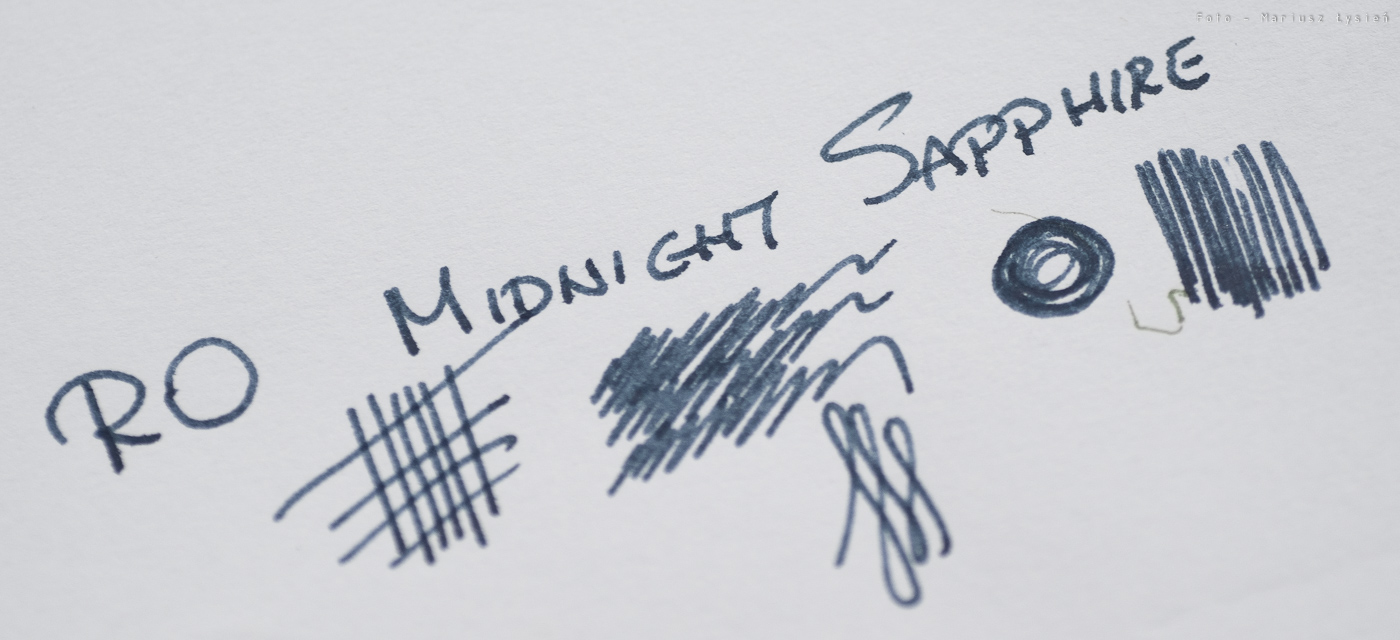 Foto - Mariusz Łysień
RO MIDNIGHT SAPPHIRE